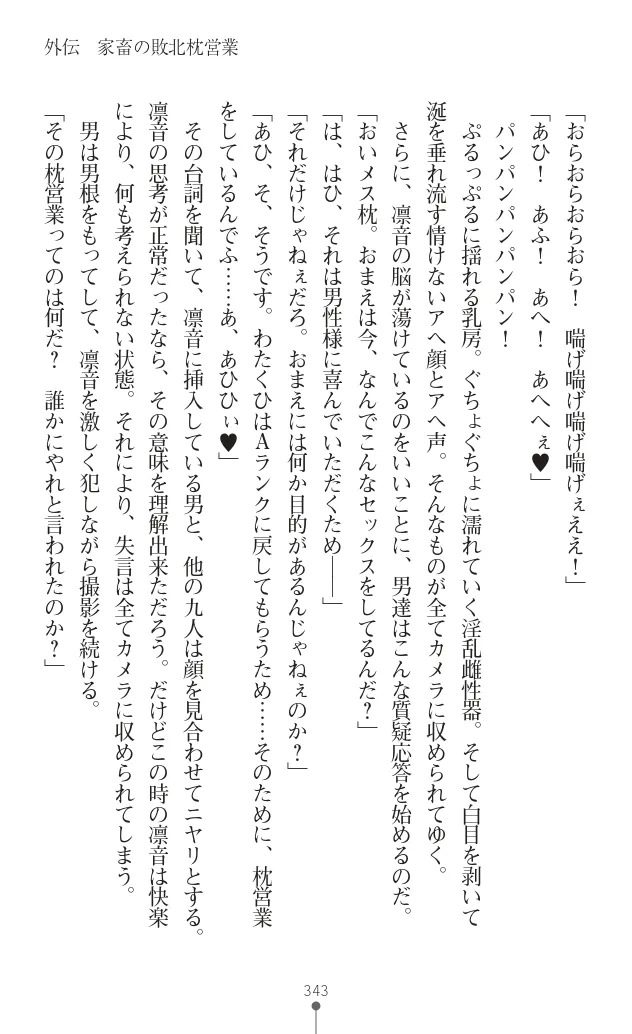 外伝　家畜の敗北枕営業
「おらおらおらおら！　喘げ喘げ喘げ喘げぇええ！」
「あひ！　あふ！　あへ！　あへへぇ♥」
パンパンパンパンパン！
ぷるっぷるに揺れる乳房。ぐちょぐちょに濡れていく淫乱雌性器。そして白目を剥いて
涎を垂れ流す情けないアヘ顔とアヘ声。そんなものが全てカメラに収められてゆく。
さらに、凛音の脳が蕩けているのをいいことに、男達はこんな質疑応答を始めるのだ。
「おいメス枕。おまえは今、なんでこんなセックスをしてるんだ？」
「は、はひ、それは男性様に喜んでいただくため――」
「それだけじゃねぇだろ。おまえには何か目的があるんじゃねぇのか？」
「あひ、そ、そうです。わたくひはＡランクに戻してもらうため……そのために、枕営業
をしているんでふ……あ、あひひぃ♥」
その台詞を聞いて、凛音に挿入している男と、他の九人は顔を見合わせてニヤリとする。
凛音の思考が正常だったなら、その意味を理解出来ただろう。だけどこの時の凛音は快楽
により、何も考えられない状態。それにより、失言は全てカメラに収められてしまう。
男は男根をもってして、凛音を激しく犯しながら撮影を続ける。
「その枕営業ってのは何だ？　誰かにやれと言われたのか？」
343